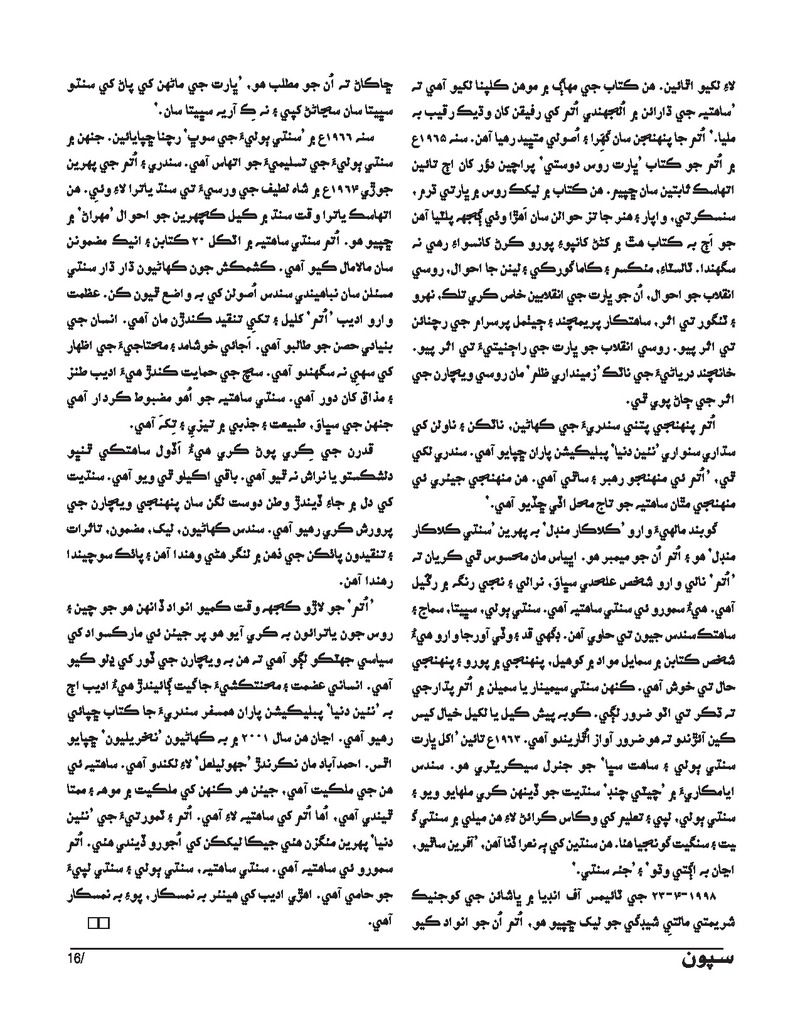 لاءِ لکيو اٿائين. هن ڪتاب جي مهاڳ ۾ موهن ڪلپنا لکيو آهي ته
'ساهتيہ جي ڌارائن ۾ اُلجهندي اُتم کي رفيقن کان وڌيڪ رقيب به
مليا.' اُتم جا پنهنجن سان گهرا ۽ اُصولي متڀيد رهيا آهن. سنه ۱۹٦۵ع
۾ اُتم جو ڪتاب 'ڀارت روس دوستي' پراچين دؤر کان اڄ تائين
اتهاسڪ ثابتين سان ڇپيم. هن ڪتاب ۾ ليکڪ روس ۾ ڀارتي ڌرم،
سنسڪرتي، واپار ۽ هنر جا تز حوالن سان اَهڙا وڻي ڳُجهه پلٽيا آهن
جو اَڄ به ڪتاب هٿ ۾ کڻڻ کانپوءِ پورو ڪرڻ کانسواءِ رهي نه
سگهندا. ٽالسٽاءِ، مئڪسم ۽ ڪاما گورڪي ۽ لينن جا احوال، روسي
انقلاب جو احوال، اُن جو ڀارت جي انقلابين خاص ڪري تلڪ، نهرو
۽ ٽئگور تي اثر، ساهتڪار پريمچند ۽ جيٺمل پرسرام جي رچنائن
تي اثر پيو. روسي انقلاب جو ڀارت جي راڄنيتيءَ تي اثر پيو.
خانچند درياڻيءَ جي ناٽڪ 'زمينداري ظلم' مان روسي ويچارن جي
اثر جي ڄاڻ پوي ٿي.
اُتم پنهنجي پتني سندريءَ جي ڪهاڻين، ناٽڪن ۽ ناولن کي
سڌاري سنواري 'نئين دنيا' پبليڪيشن پاران ڇپايو آهي. سندري لکي
ٿي، 'اُتم ئي منهنجو رهبر ۽ ساٿي آهي. هن منهنجي جيئري ئي
منهنجي مٿان ساهتيہ جو تاج محل اڏي ڇڏيو آهي.'
گوبند مالهيءَ وارو 'ڪلاڪار منڊل' به پهرين 'سنڌي ڪلاڪار
منڊل' هو ۽ اُتم اُن جو ميمبر هو. اڀياس مان محسوس ٿي ڪريان ته
'اُتم' نالي وارو شخص علحدي سڀاوَ، نرالي ۽ نجي رنگہ ۾ رڱيل
آهي. هيءُ سمورو ئي سنڌي ساهتيہ آهي. سنڌي ٻولي، سڀيتا، سماج ۽
ساهتڪ سندس جيون تي حاوي آهن. ڊگهي قد ۽ وڏي آورجا وارو هيءُ
شخص ڪتابن ۾ سمايل مواد ۾ کوهيل، پنهنجي ۾ پورو ۽ پنهنجي
حال تي خوش آهي. ڪنهن سنڌي سيمينار يا سميلن ۾ اُتم پڌارجي
ته ڌڪر تي اٽو ضرور لڳي. ڪوبه پيش ڪيل يا لکيل خيال کيس
ڪين آئڙندو ته هو ضرور آواز اُٿاريندو آهي. ۱۹٦۳ع تائين 'اکل ڀارت
سنڌي ٻولي ۽ ساهت سڀا' جو جنرل سيڪريٽري هو. سندس
ايامڪاريءَ ۾ 'چيٽي چنڊ' سنڌيت جو ڏينهن ڪري ملهايو ويو ۽
سنڌي ٻولي، لپي ۽ تعليم کي وڪاس ڪرائڻ لاءِ هن ميلي ۾ سنڌي گ
يت ۽ سنگيت گونجيا هئا. هن سنڌين کي ٻه نعرا ڏنا آهن، 'آفرين ساٿيو،
اڃان به اڳتي وڌو' ۽ 'جئه سنڌي.'
۲۳-۴-۱۹۹۸ جي ٽائيمس آف انڊيا ۾ ڀاشائن جي کوجنيڪ
شريمتي مالتي شيڊگي جو ليک ڇپيو هو، اُتم اُن جو انواد ڪيو
ڇاڪاڻ ته اُن جو مطلب هو، 'ڀارت جي ماڻهن کي پاڻ کي سنڌو
سڀيتا سان سڃاڻڻ کپي ۽ نه ڪِ آريہ سڀيتا سان.'
سنه ۱۹٦٦ع ۾ 'سنڌي ٻوليءَ جي سوڀ' رچنا ڇپايائين. جنهن ۾
سنڌي ٻوليءَ جي تسليميءَ جو اتهاس آهي. سندري ۽ اُتم جي پهرين
جوڙي ۱۹٦۴ع ۾ شاه لطيف جي ورسيءَ تي سنڌ ياترا لاءِ وئي. هن
اتهاسڪ ياترا وقت سنڌ ۾ ڪيل ڪچهرين جو احوال 'مهراڻ' ۾
ڇپيو هو. اُتم سنڌي ساهتيہ ۾ اٽڪل ۲۰ ڪتابن ۽ انيڪ مضمونن
سان مالامال ڪيو آهي. ڪشمڪش جون ڪهاڻيون ڌار ڌار سنڌي
مسئلن سان نباهيندي سندس اُصولن کي به واضح ٿيون ڪن. عظمت
وارو اديب 'اُتم' کليل ۽ تکي تنقيد ڪندڙن مان آهي. انسان جي
بنيادي حصن جو طالبو آهي. اَجائي خوشامد ۽ محتاجيءَ جي اظهار
کي سهي نه سگهندو آهي. سچ جي حمايت ڪندڙ هيءُ اديب طنز
۽ مذاق کان دور آهي. سنڌي ساهتيہ جو اُهو مضبوط ڪردار آهي
جنهن جي سڀاوَ، طبيعت ۽ جذبي ۾ تيزي ۽ تِکَہ آهي.
قدرن جي ڪِري پوڻ ڪري هيءُ اَڏول ساهتڪي ٿنڀو
دلشڪستو يا نراش نه ٿيو آهي. باقي اڪيلو ٿي ويو آهي. سنڌيت
کي دل ۾ جاءِ ڏيندڙ وطن دوست لڳن سان پنهنجي ويچارن جي
پرورش ڪري رهيو آهي. سندس ڪهاڻيون، ليک، مضمون، تاثرات
۽ تنقيدون پاٺڪن جي ذهن ۾ لنگر هڻي وهندا آهن ۽ پاٺڪ سوچيندا
رهندا آهن.
'اُتم' جو لاڙو ڪجهہ وقت ڪميو انواد ڏانهن هو جو چين ۽
روس جون ياترائون به ڪري آيو هو پر جيئن ئي مارڪسواد کي
سياسي جهٽڪو لڳو آهي ته هن به ويچارن جي ڏور کي ڍلو ڪيو
آهي. انساني عضمت ۽ محنتڪشيءَ جا گيت ڳائيندڙ هيءُ اديب اڄ
به 'نئين دنيا' پبليڪيشن پاران همسفر سندريءَ جا ڪتاب ڇپائي
رهيو آهي. اڃان هن سال ۲۰۰۱ ۾ به ڪهاڻيون 'نخريليون' ڇپايو
اٿس. احمدآباد مان نڪرندڙ 'جهوليلعل' لاءِ لکندو آهي. ساهتيہ ئي
هن جي ملڪيت آهي، جيئن هر ڪنهن کي ملڪيت ۾ موهہ ۽ ممتا
ٿيندي آهي، اُها اُتم کي ساهتيہ لاءِ آهي. اُتم ۽ ٽمورتيءَ جي 'نئين
دنيا' پهرين مئگزن هئي جيڪا ليکڪن کي اُجورو ڏيندي هئي. اُتم
سمورو ئي ساهتيہ آهي. سنڌي ساهتيہ، سنڌي ٻولي ۽ سنڌي لپيءَ
جو حامي آهي. اهڙي اديب کي هينئر به نمسڪار، پوءِ به نمسڪار
آهي.
16/
سپون